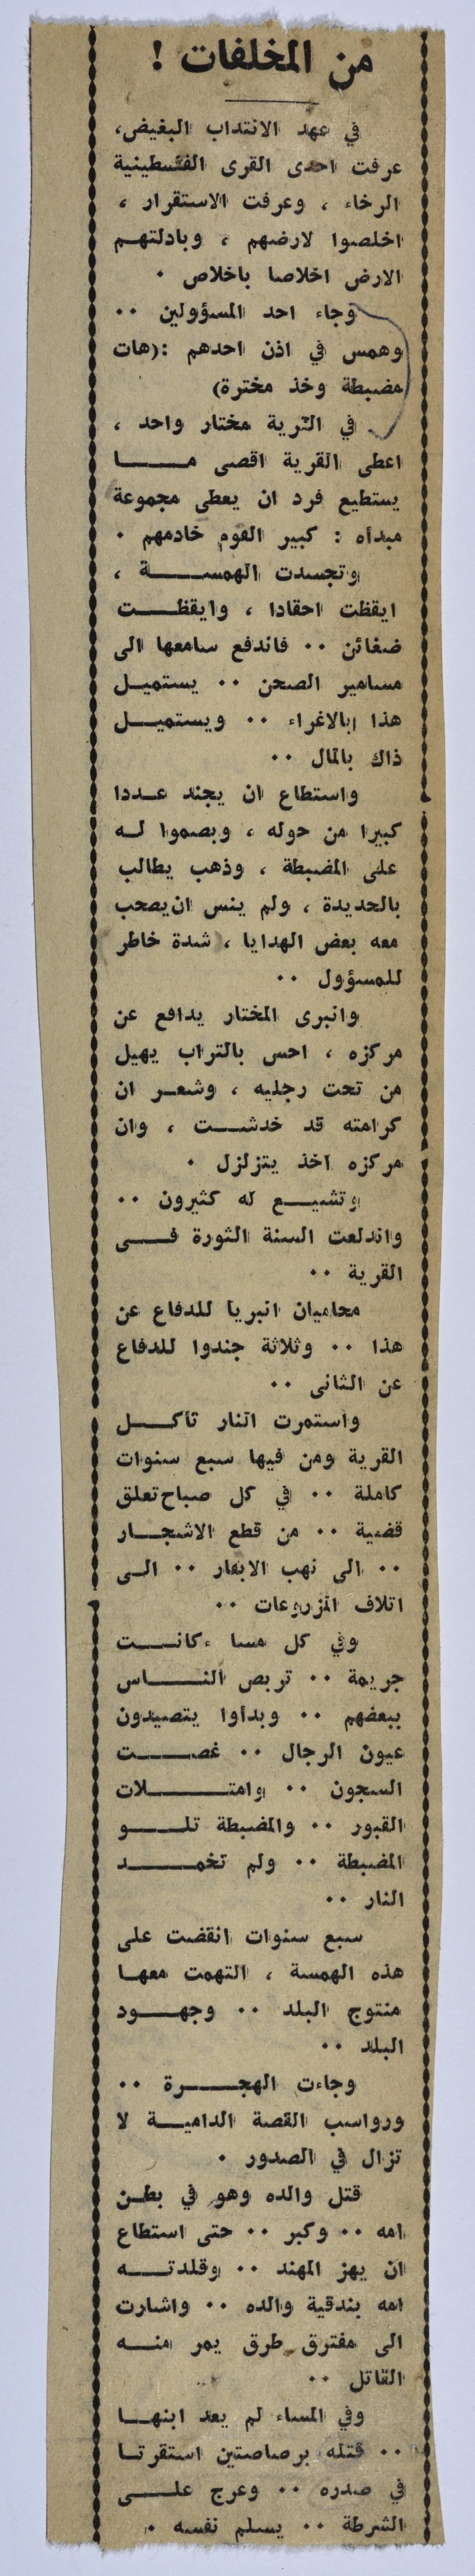 من المخلفات !
في عهد الانتداب البغيض،
عرفت احدى القرى الفلسطينية
الرخاء ، وعرفت الاستقرار ،
اخلصوا لارضهم ، وبادلتهم
الارض اخلاصا باخلاص .
وجاء احد المسؤولين ..
وهمس في اذن احدهم :(هات
مضبطة وخذ مخترة)
في القرية مختار واحد ،
اعطى القرية اقصى مــــا
يستطيع فرد ان يعطى مجموعة
مبدأه : كبير القوم خادمهم .
وتجسدت الهمســـة ،
ايقظت احقادا ، وايقظـــت
ضغائن .. فاندفع سامعها الى
مسامير الصحن .. يستميـل
هذا بالاغراء .. ويستميـــل
ذاك بالمال ..
واستطاع ان يجند عـددا
كبيرا من حوله ، وبصموا لـه
على المضبطة ، وذهب يطالب
بالجديدة ، ولم ينس ان يصحب
معه بعض الهدايا ، شدة خاطر
للمسؤول ..
وانبرى المختار يدافع عن
مركزه ، احس بالتراب يهيل
من تحت رجليه ، وشعـر ان
كرامته قد خدشـــت ، وان
مركزه اخذ يتزلزل .
وتشيـــع له كثيرون ..
واندلعت السنة الثورة فـــى
القرية ..
محاميان انبريا للدفاع عن
هذا .. وثلاثة جندوا للدفاع
عن الثانى ..
واستمرت النار تأكـــل
القرية ومن فيها سبع سنوات
كاملة .. في كل صباح تعلق
قضية .. من قطع الاشجـــار
.. الى نهب الابقار .. الـى
اتلاف المزروعات ..
وفي كل مساء كانـــت
جريمة .. تربص النــــاس
ببعضهم .. وبداوا يتصيدون
عيون الرجال .. غصـــت
السجون .. وامتـــــلات
القبور .. والمضبطة تلـــو
المضبطة .. ولم تخمـــد
النار ..
سبع سنوات انقضت على
هذه الهمسة ، التهمت معهـا
منتوج البلد .. وجهـــود
البلد ..
وجاءت الهجـــرة ..
ورواسب القصة الداميـــة لا
تزال في الصدور .
قتل والده وهو في بطـن
امه .. وكبر .. حتى استطاع
ان يهز المهند .. وقلدتـــه
امه بندقية والده .. واشارت
الى مفترق طرق يمر منـــه
القاتل ..
وفي المساء لم يعد ابنهـــا
.. قتله برصاصتين استقرتـا
في صدره .. وعرج علـــى
الشرطة .. يسلم نفسه .